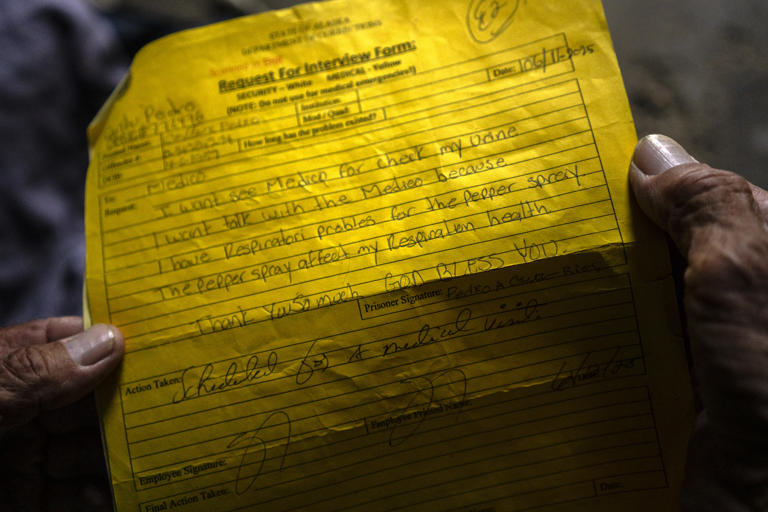 STATE OF ALASKA
DEPARTMENT OF CORRECTIONS
Request For Interview Form:
SECURITY - White MEDICAL - Yellow
(NOTE: Do not use for medical emergencies!)
Pedro
Institution:
Date: 06/11/2025
Mod / Quad:
How long has the problem existed?
To: Medico
Request: I want see Medico for check my urine
I want talk with the Medico because
I have Respiratori probles for the Pepper spray
The Pepper spray affect my Respiration health
Thank You So much GOD BLESS YOU.
Prisoner Signature: Pedro A
Action Taken: Scheduled for A medical visit.
Employee Signature:
Employee Printed Name:
Final Action Taken:
Date: